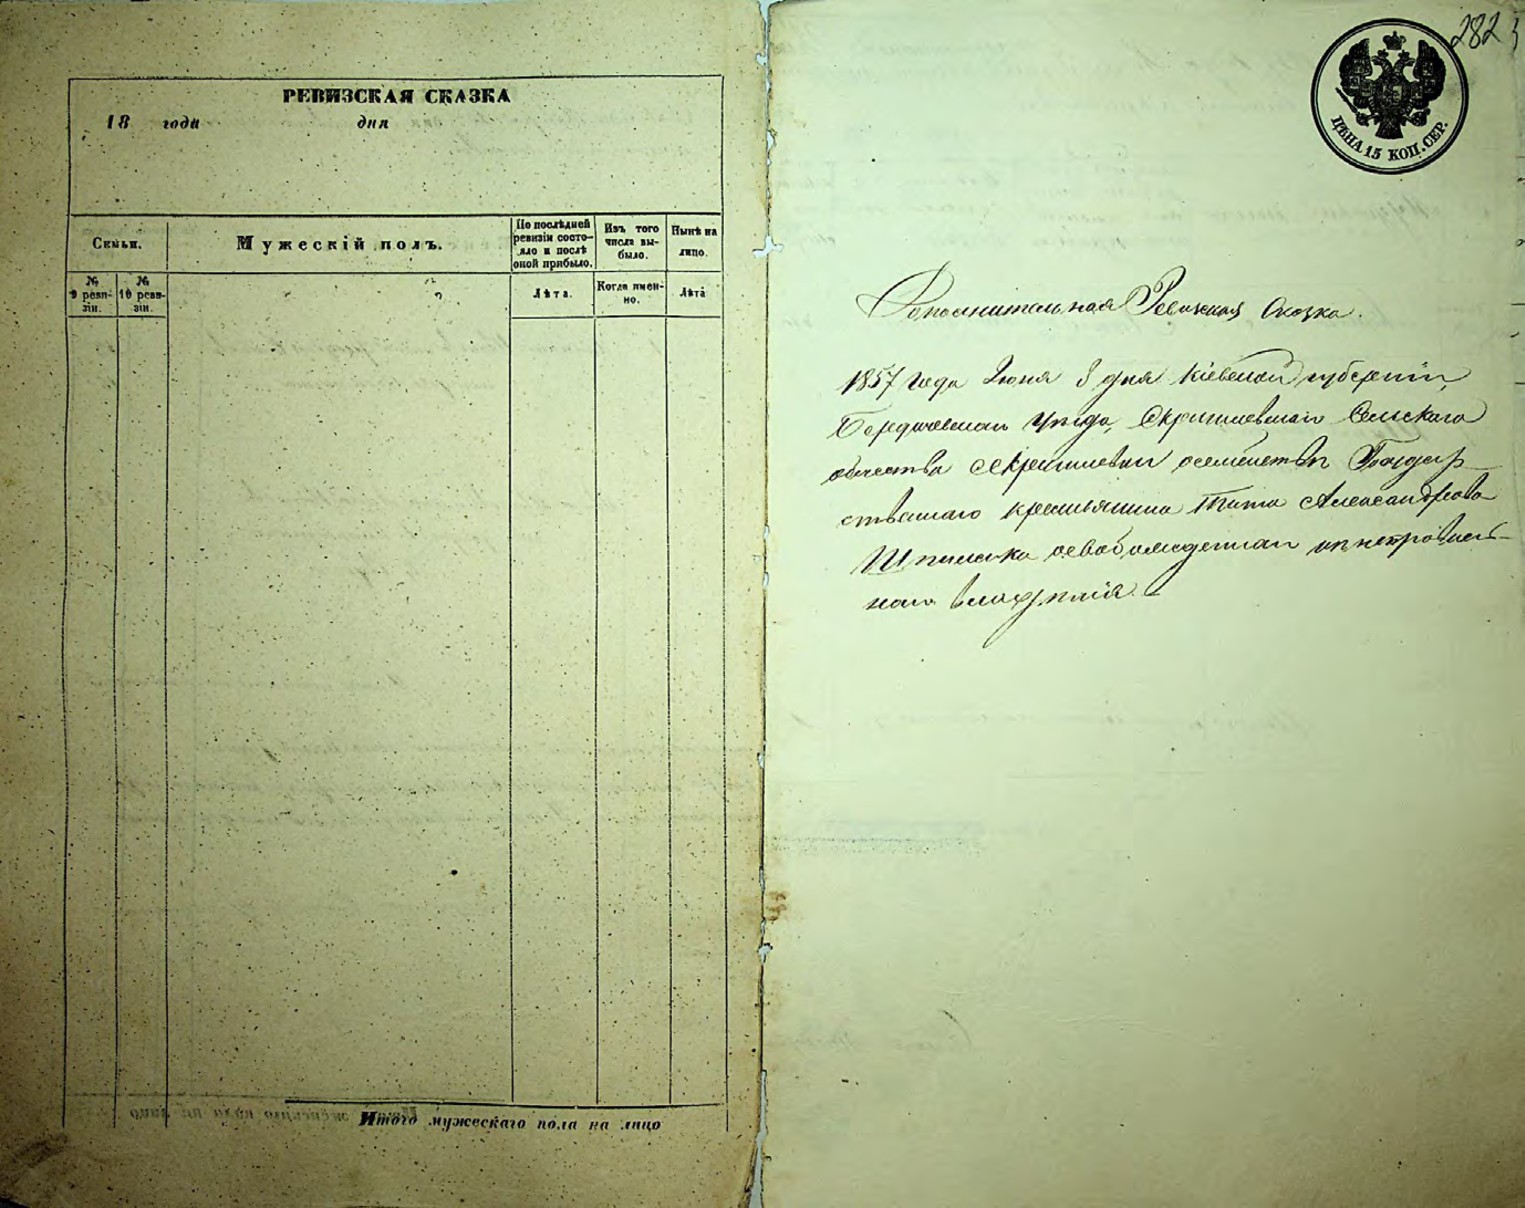 РЕВИЗСКАЯ СКАЗКА
18 года дня
Семьи.
Мужескій полъ.
По послѣдней ревизіи состояло и послѣ оной прибыло.
Изъ того числа выбыло.
Нынѣ на лицо.
№ 9 ревизіи.
№ 10 ревизіи.
Лѣта.
Когда именно.
Лѣта
Итого мужескаго пола на лицо
282
ЦѢНА 15 КОП. СЕР.
Дополнительная Ревизская Сказка.
1857 года Июня 8 дня Кіевской губерніи,
Бердичевскаго уѣзда, Сельскаго
общества о семействѣ Государ
ственнаго крестьянина Тита Александрова
освобожденнаго
наго владѣнія.